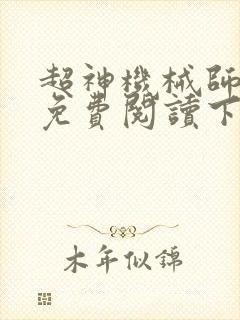 超神機械師
免費閱讀下
木年似錦